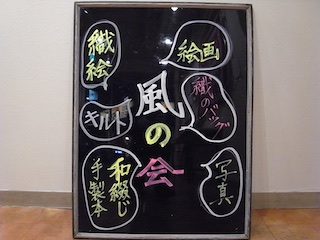 風の会
織絵
絵画
キルト
織のバッグ
和綴じ
手製本
写真